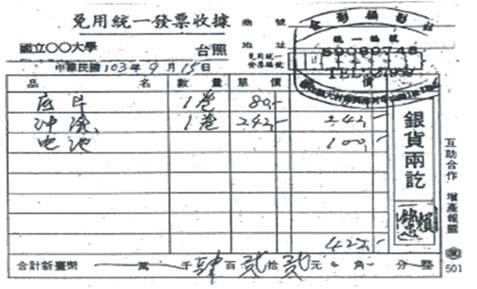 免用統一發票收據
國立○○大學 台照
商號
地址
免用統一發票編號
統一編號
TEL:
中華民國103年9月15日
品名 數量 單價 價
底片 1卷 80.-
沖洗 1卷 242.- 242.-
电池 100.-
422.-
合計新臺幣 萬 千肆百貳拾貳元 角 分整
銀貨兩訖
互助合作 增產報國
501